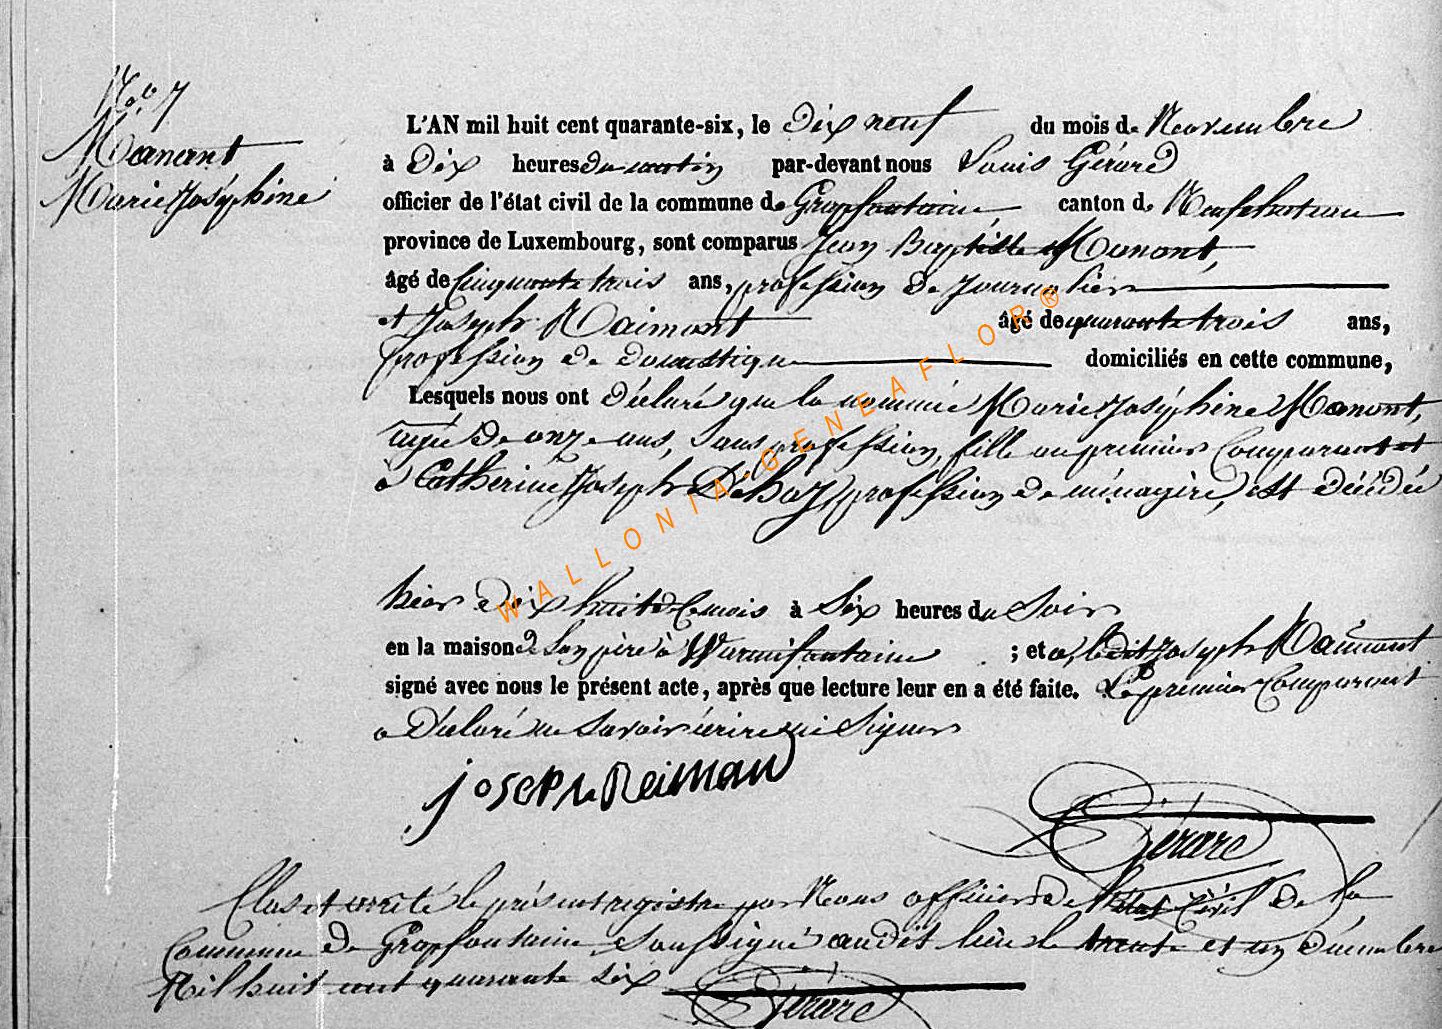 No. 7
Manant
Marie Joséphine
L'AN mil huit cent quarante-six, le Dix neuf du mois de Novembre
à Dix heures du matin par-devant nous Louis Gérard
officier de l'état civil de la commune de Grapfontaine, canton de Neufchateau
province de Luxembourg, sont comparus Jean Baptiste Manant,
âgé de Cinquante trois ans, profession de journalier
et Joseph Raimont âgé de quarante trois ans,
profession de domestique domiciliés en cette commune,
Lesquels nous ont Déclaré que la nommée Marie Joséphine Manant,
agée de onze ans, sans profession, fille au premier Comparant et
à Catherine Joseph profession de ménagère, est Décédée
hier dix huit de ce mois à Six heures du Soir
en la maison de Son père à Warmifontaine ; et a, ledit Joseph Raimont
signé avec nous le présent acte, après que lecture leur en a été faite. Le premier Comparant
a Déclaré ne Savoir écrire ni Signer
joseph Reiman
Gérard
Clos et arrêté le présent registre par Nous officier de l'état Civil de la
Commune de Grapfontaine Soussigné audit lieu le trente et un Décembre
Mil huit cent quarante Six
Gérard
WALLONIA-GENEAFLOR®